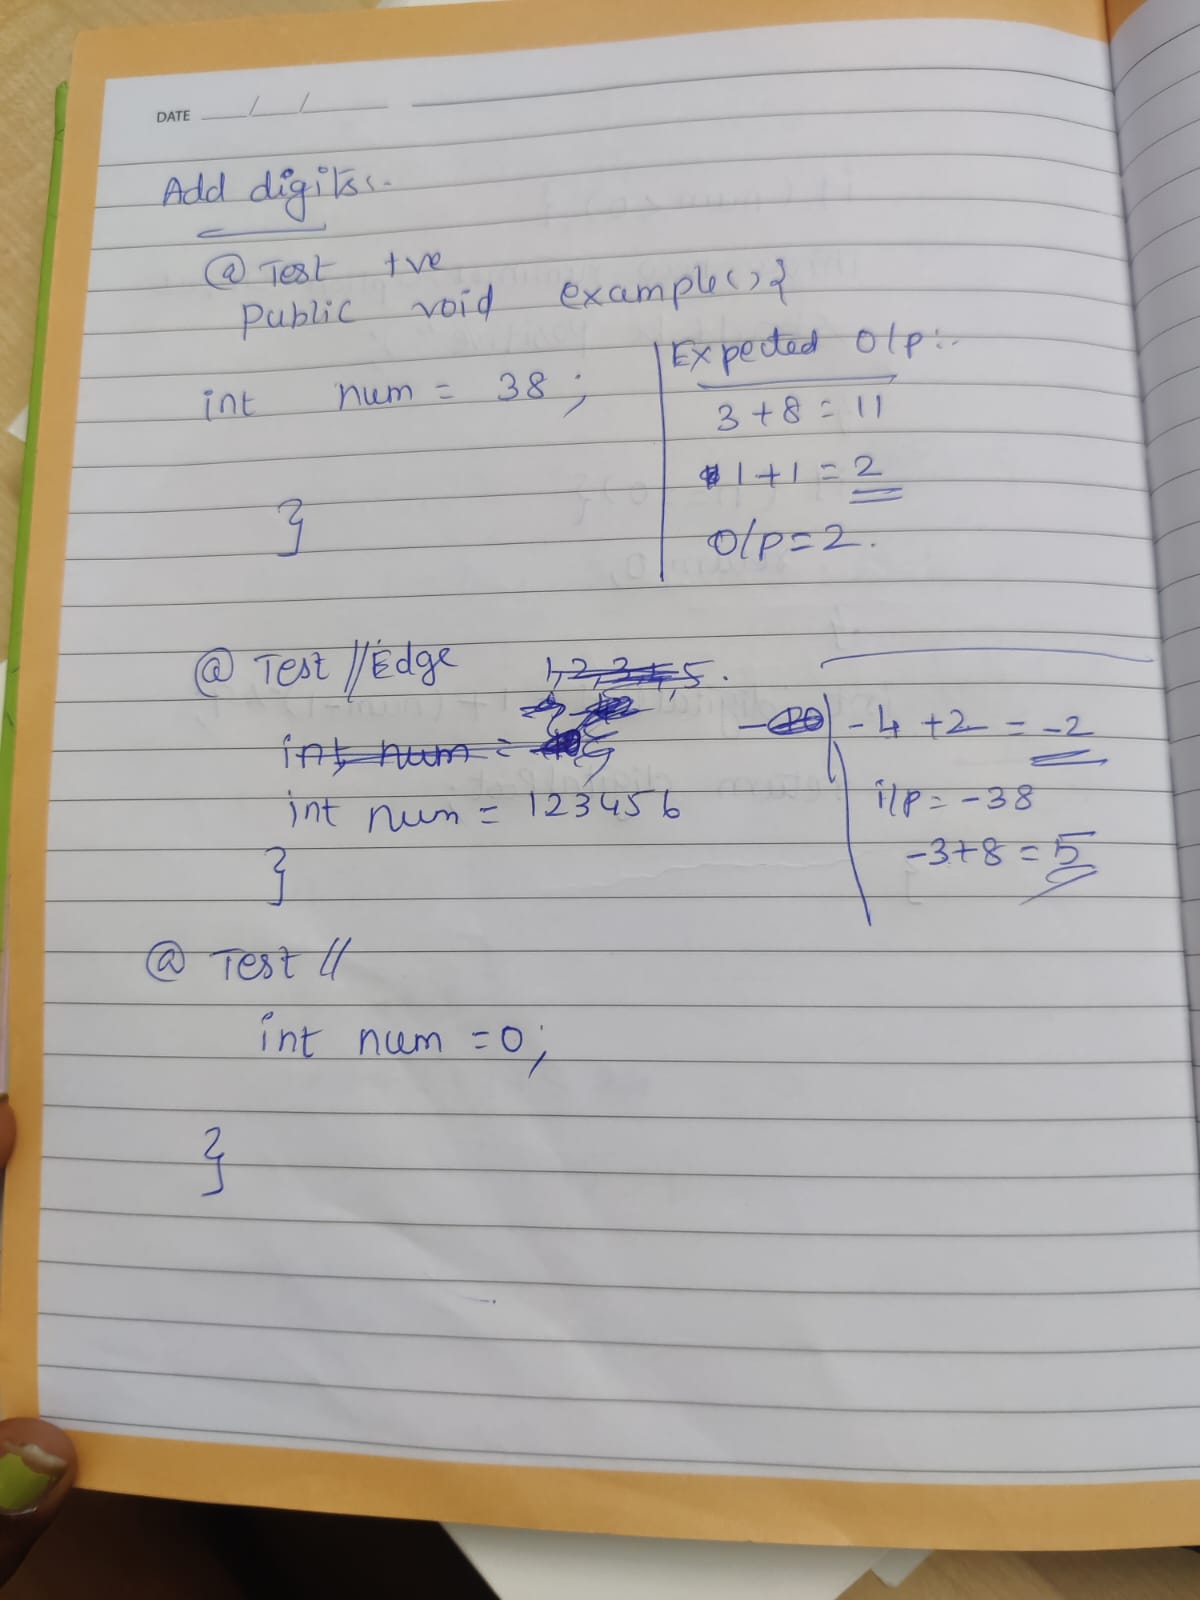 DATE
Add digits:-
@ Test +ve
public void example() {
int num = 38 ;
}
Expected O/p:-
3 + 8 = 11
1 + 1 = 2
O/p = 2.
@ Test // Edge
1,2,3,4,5.
int num =
int num = 123456
}
- 4 + 2 = -2
i/p = -38
-3+8 = 5
@ Test //
int num = 0;
}